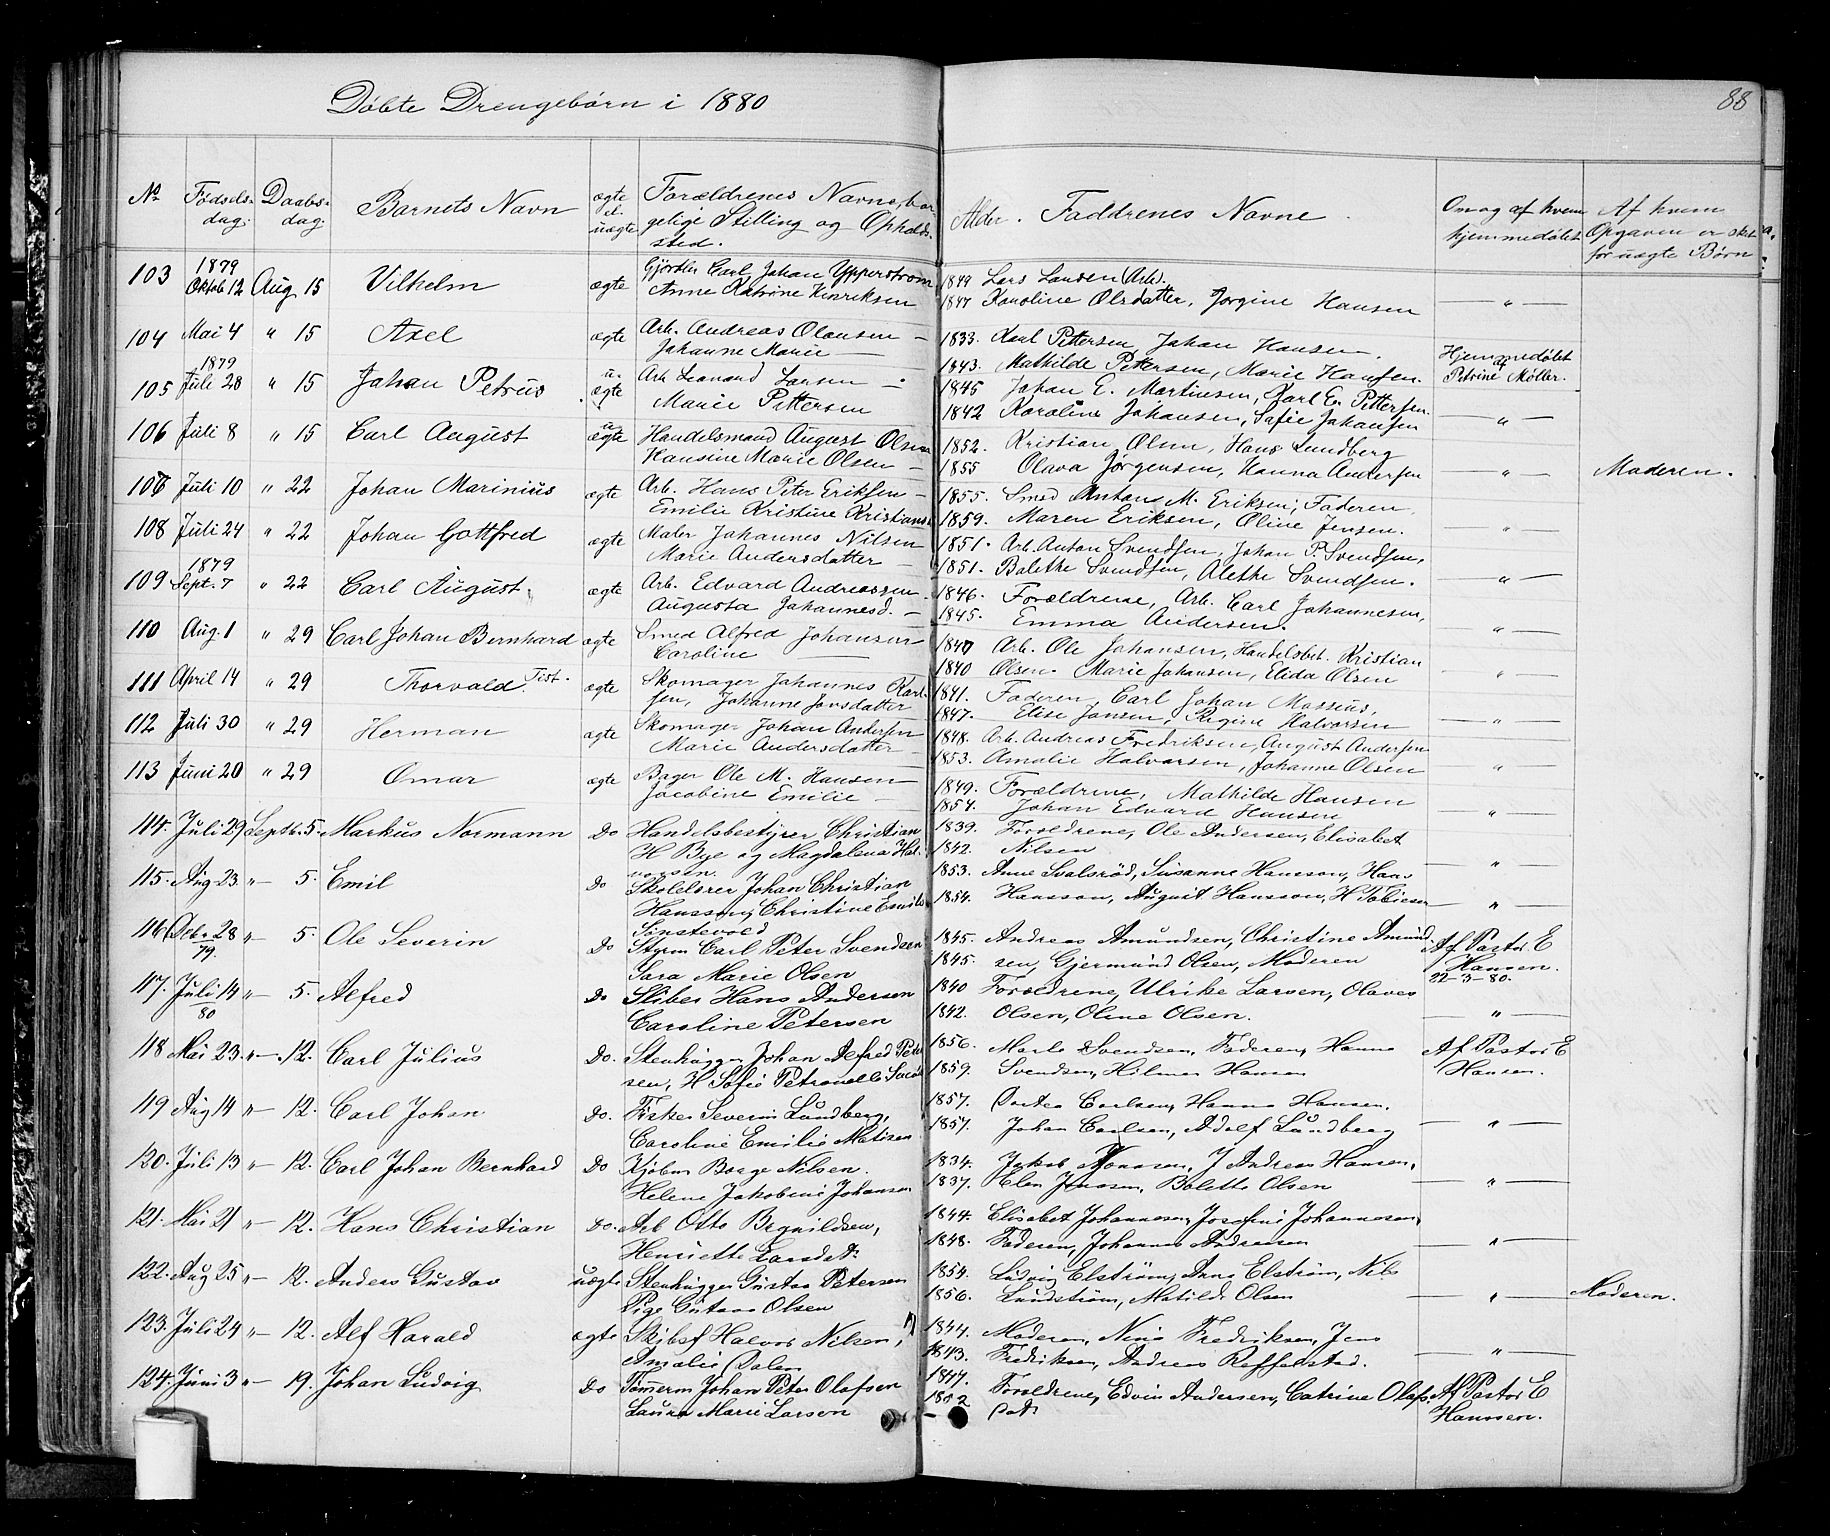 Døbte Drengebørn i 1880
88
No Fødsels- dag. Daabs- dag. Barnets Navn ægte el. uægte Forældrenes Navne, bor- gelige Stilling og Opholds- sted. Alder. Faddrenes Navne Om og af hvem hjemmedøbt Af hvem Opgaven er sket for uægte Børn
103 1879 Oktob 12 Aug 15 Vilhelm ægte Gjørtler Carl Johan Ypperstrom 1849 Lars Larsen (Arb).
Anne Katrine Henriksen 1847 Karoline Olsdatter, Jørgine Hansen — " —
104 Mai 4 " 15 Axel ægte Arb. Andreas Olausen — 1833. Karl Pettersen Johan Hansen.
Johanne Marie — 1843. Mathilde Pettersen, Marie Hansen. Hjemmedøbt af Petrine Møller.
105 1879 Juli 28 " 15 Johan Petrus u. ægte Arb. Leonard Larsen — 1845 Johan E. Martinsen, Karl E. Pettersen
Marie Pettersen 1842 Karoline Johansen, Safie Johansen — " —
106 Juli 8 " 15 Carl August u ægte Handelsmand August Olsen 1852. Kristian Olsen, Hans Lundberg
Hansine Marie Olsen — 1855 Olava Jørgensen, Hanna Andersen — " — Moderen.
106 Juli 10 " 22 Johan Marinius ægte Arb. Hans Peter Eriksen — 1855. Smed Anton M. Eriksen, Faderen
Emilie Kristine Kristians- 1859. Maren Eriksen, Oline Jensen. — " —
108 Juli 24 " 22 Johan Gottfred ægte Maler Johannes Nilsen 1851. Arb. Anton Svendsen, Johan P. Svendsen,
Marie Andersdatter — 1851. Balethe Svendsen, Alethe Svendsen. — " —
109 1879 Sept. 7 " 22 Carl August ægte Arb. Edvard Andreassen 1846. Forældrene, Arb. Carl Johannesen,
Augusta Johannesd. — 1845. Emma Andersen. — " —
110 Aug. 1 " 29 Carl Johan Bernhard ægte Smed Alfred Johansen 1847 Arb. Ole Johansen, Handelsbet. Kristian
Caroline — 1840 Olsen. Marie Johansen, Elida Olsen — " —
111 April 14 " 29 Thorvald Tist. ægte Skomager Johannes Karl- 1841. Faderen, Carl Johan Massius,
sen, Johanne Jonsdatter — 1847. Elise Jansen, Regine Halvorsen — " —
112 Juli 30 " 29 Herman ægte Skomager Johan Andersen 1848. Arb. Andreas Fredriksen, August Andersen
Marie Andersdatter — 1853. Amalie Halvorsen, Johanne Olsen — " —
113 Juni 20 " 29 Omar ægte Bager Ole M. Hansen 1849. Forældrene, Mathilde Hansen
Jacobine Emilie — 1854. Johan Edvard Hansen — " —
114. Juli 29 Septb. 5. Markus Normann Do Handelsbestyrer Christian 1839. Forældrene, Ole Andersen, Elisabet
H Bye og Magdalena Hal- vorsen 1842. Nilsen — " —
115. Aug 23. " — 5. Emil Do Skolelærer Johan Christian 1853. Anne Svalsrød, Susanne Hansson, Hans
Hansson, Christine Emilie Sønstevold 1854. Hansson, August Hansson, H Tobiesen — " —
116. Octbr 28 79. " 5. Ole Severin Do Styrm Carl Peter Svendsen 1845. Andreas Amundsen, Christine Amund-
Sara Marie Olsen 1845. sen, Gjermund Olsen, Moderen Af Pastor E Hansen. 22-3-80.
117. Juli 14 80 " — 5. Alfred Do Sliber Hans Andersen 1840 Forældrene, Ulrike Larsen, Olaves
Caroline Petersen 1842. Olsen, Oline Olsen. — " —
118 Mai 23. " — 12. Carl Julius Do. Stenhugger Johan Alfred Peter- 1856. Svendsen, Faderen, Hanna Af Pastor E
sen, H Sofie Petronelle 1859. Svendsen, Hilmer Hansen Hansen.
119 Aug 14 " — 12. Carl Johan Do. Fisker Severin Lundberg, 1857. Carlsen, Hanna Hansen,
Caroline Emilie Matisen 1857. Johan Carlsen, Adolf Lundberg — " —
120. Juli 13 " — 12. Carl Johan Bernhard Do Kjøbm Borge Nilsen. 1834. Jakob Jonasen, J Andreas Hansen,
Helene Jakobine Johansen 1837. Elen Jonasen, Bolette Olsen — " —
121. Mai 21 " — 12. Hans Christian Do. Arb Otto Begnildsen, 1844. Elisabet Johannesen, Josefine Johannesen,
Henriette Larsdt. 1848. Faderen, Johannes Andersen — " —
122. Aug 25 " — 12. Anders Gustav uægte Stenhugger Gustav Petersen 1854. Ludvig Elstrøm, Anna Elstrøm, Nils
Pige Gustava Olsen 1856. Lundstrøm, Matilde Olsen — " — Moderen.
123. Juli 24 " — 12. Alf Harald ægte Skibsf Halvor Nilsen, 1844. Moderen, Nina Fredriksen, Jens
Amalie Dalen 1843. Fredriksen, Andreas Reffelstad. — " —
124. Juni 3 " — 19. Johan Ludvig Do Tømerm Johan Peter Olafsen 1847. Forældrene, Edvin Andersen, Catrine Olafs- Af Pastor E
Laura Marie Larsen 1842 Datr Hanssen.